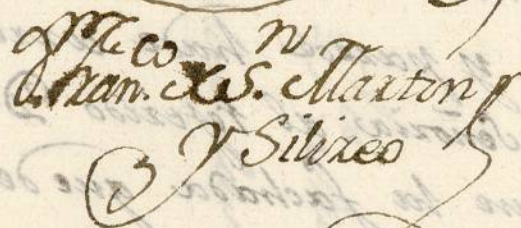 Fran.co S.n Martin
y Silizeo